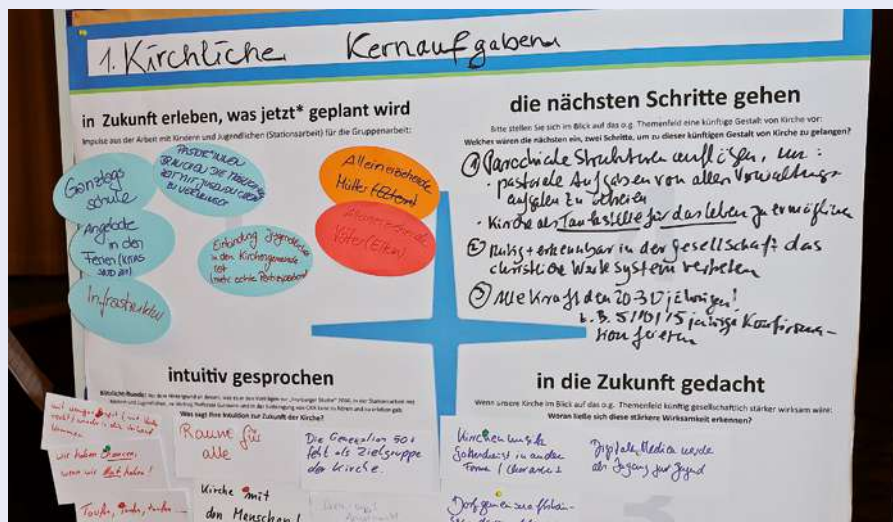 1. Kirchliche Kernaufgaben
in Zukunft erleben, was jetzt* geplant wird
Impulse aus der Arbeit mit Kindern und Jugendlichen (Stationsarbeit) für die Gruppenarbeit:
Ganztags
schule
PASTOR*INNEN
BRAUCHEN DIE
ZEIT MIT JUGENDLICHEN
ZU VER
Angebote
in den
Ferien (KITAS
SIND ZU!)
Infrastruktur
Einbindung Jugendlicher
in den Kirchengemeinde
rat
(mehr echte Partizipation)
Alleinerziehende
Mütter (Eltern)
Alleinerziehende
Väter (Eltern)
die nächsten Schritte gehen
Bitte stellen Sie sich im Blick auf das o.g. Themenfeld eine künftige Gestalt von Kirche vor:
Welches wären die nächsten ein, zwei Schritte, um zu dieser künftigen Gestalt von Kirche zu gelangen?
① Parochiale Strukturen auflösen, um:
· pastorale Aufgaben von allen Verwaltungs-
aufgaben zu
· Kirche als Tankstelle für das Leben zu ermöglichen
② Mutig + erkennbar in der Gesellschaft das
christliche Wertesystem vertreten
③ Alle Kraft den 20-30 jährigen!
z.B. 5/10/15 jährige Konfirma-
tion feiern
intuitiv gesprochen
Was sagt Ihre Intuition zur Zukunft der Kirche?
mit weniger
wir haben Chancen,
wenn wir Mut haben!
Taufen, taufen, taufen
Räume für
alle
Kirche mit
den Menschen!
Die Generation 50+
fehlt als Zielgruppe
der Kirche.
in die Zukunft gedacht
Wenn unsere Kirche im Blick auf das o.g. Themenfeld künftig gesellschaftlich stärker wirksam wäre:
Woran ließe sich diese stärkere Wirksamkeit erkennen?
Kirchenmusik
Gottesdienst in anderer
Form
Digitale Medien
als Zugang zur Jugend